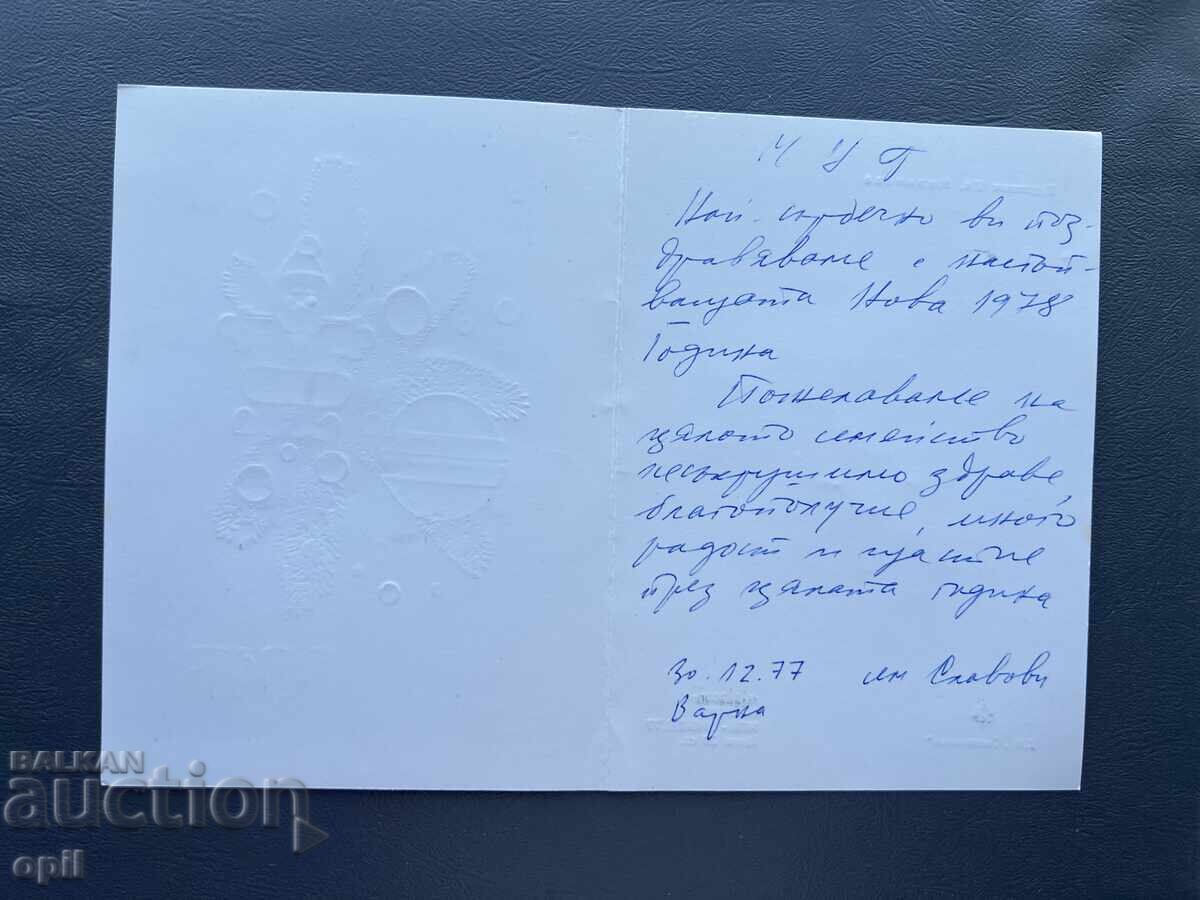 Ч У Г
Най-сърдечно ви поз-
дравяваме с настъп-
ващата Нова 1978
Година
Пожелаваме на
цялото семейство
несъкрушимо здраве,
благополучие, много
радост и щастие
през цялата година
30.12.77 сем Славови
Варна
BALKAN
auction
opil